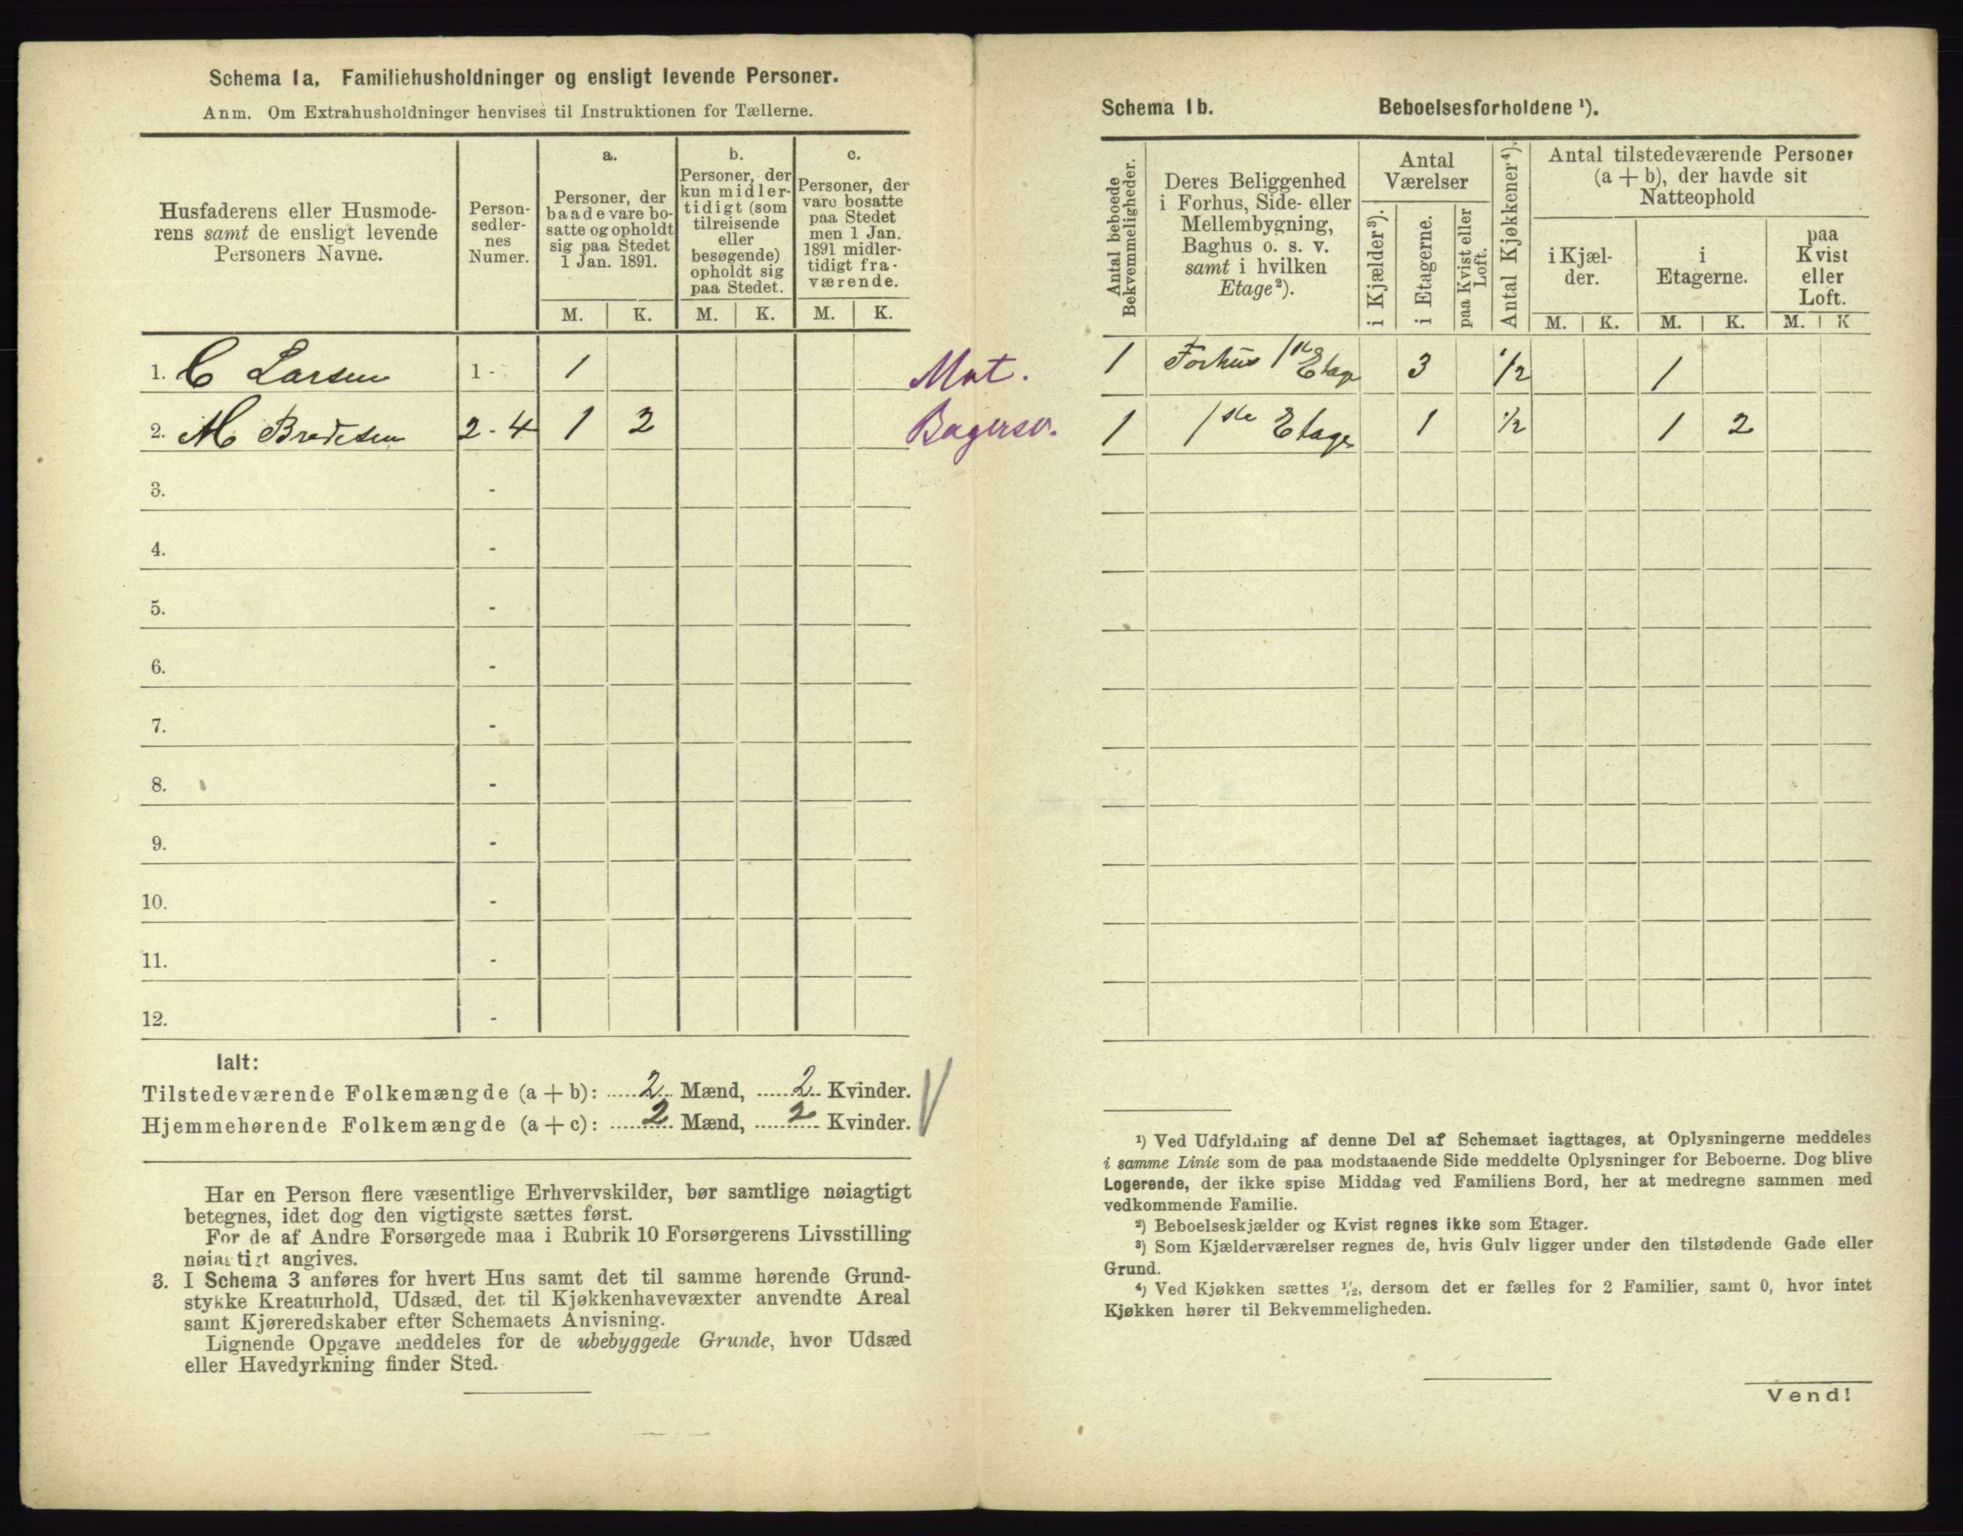 Schema 1a. Familiehusholdninger og ensligt levende Personer.
Anm. Om Extrahusholdninger henvises til Instruktionen for Tællerne.
Husfaderens eller Husmode-
rens samt de ensligt levende
Personers Navne.
Person-
sedler-
nes
Numer.
a.
Personer, der
baade vare bo-
satte og opholdt
sig paa Stedet
1 Jan. 1891.
b.
Personer, der
kun midler-
tidigt (som
tilreisende
eller
besøgende)
opholdt sig
paa Stedet.
c.
Personer, der
vare bosatte
paa Stedet
men 1 Jan.
1891 midler-
tidigt fra-
værende.
M. K. M. K. M. K.
1. C Larsen 1 - 1 Mat.
2. M Bredesen 2 - 4 1 2
3. -
4. -
5. -
6. -
7. -
8. -
9. -
10. -
11. -
12. -
Ialt:
Tilstedeværende Folkemængde (a + b): 2 Mænd, 2 Kvinder.
Hjemmehørende Folkemængde (a + c): 2 Mænd, 2 Kvinder.
Har en Person flere væsentlige Erhvervskilder, bør samtlige nøiagtigt
betegnes, idet dog den vigtigste sættes først.
For de af Andre Forsørgede maa i Rubrik 10 Forsørgerens Livsstilling
nøiagtigt angives.
3. I Schema 3 anføres for hvert Hus samt det til samme hørende Grund-
stykke Kreaturhold, Udsæd, det til Kjøkkenhavevæxter anvendte Areal
samt Kjøreredskaber efter Schemaets Anvisning.
Lignende Opgave meddeles for de ubebyggede Grunde, hvor Udsæd
eller Havedyrkning finder Sted.
Schema 1b. Beboelsesforholdene ¹).
Antal beboede
Bekvemmeligheder.
Deres Beliggenhed
i Forhus, Side- eller
Mellembygning,
Baghus o. s. v.
samt i hvilken
Etage²).
Antal
Værelser
i Kjælder³).
i Etagerne.
paa Kvist eller
Loft.
Antal Kjøkkener⁴).
Antal tilstedeværende Personer
(a + b), der havde sit
Natteophold
i Kjæl-
der.
i
Etagerne.
paa
Kvist
eller
Loft.
M. K. M. K. M. K
1 Forhus 1ste Etage 3 1/2 1
1 1ste Etage 1 1/2 1 2
¹) Ved Udfyldning af denne Del af Schemaet iagttages, at Oplysningerne meddeles
i samme Linie som de paa modstaaende Side meddelte Oplysninger for Beboerne. Dog blive
Logerende, der ikke spise Middag ved Familiens Bord, her at medregne sammen med
vedkommende Familie.
²) Beboelseskjælder og Kvist regnes ikke som Etager.
³) Som Kjælderværelser regnes de, hvis Gulv ligger under den tilstødende Gade eller
Grund.
⁴) Ved Kjøkken sættes ½, dersom det er fælles for 2 Familier, samt 0, hvor intet
Kjøkken hører til Bekvemmeligheden.
Vend!